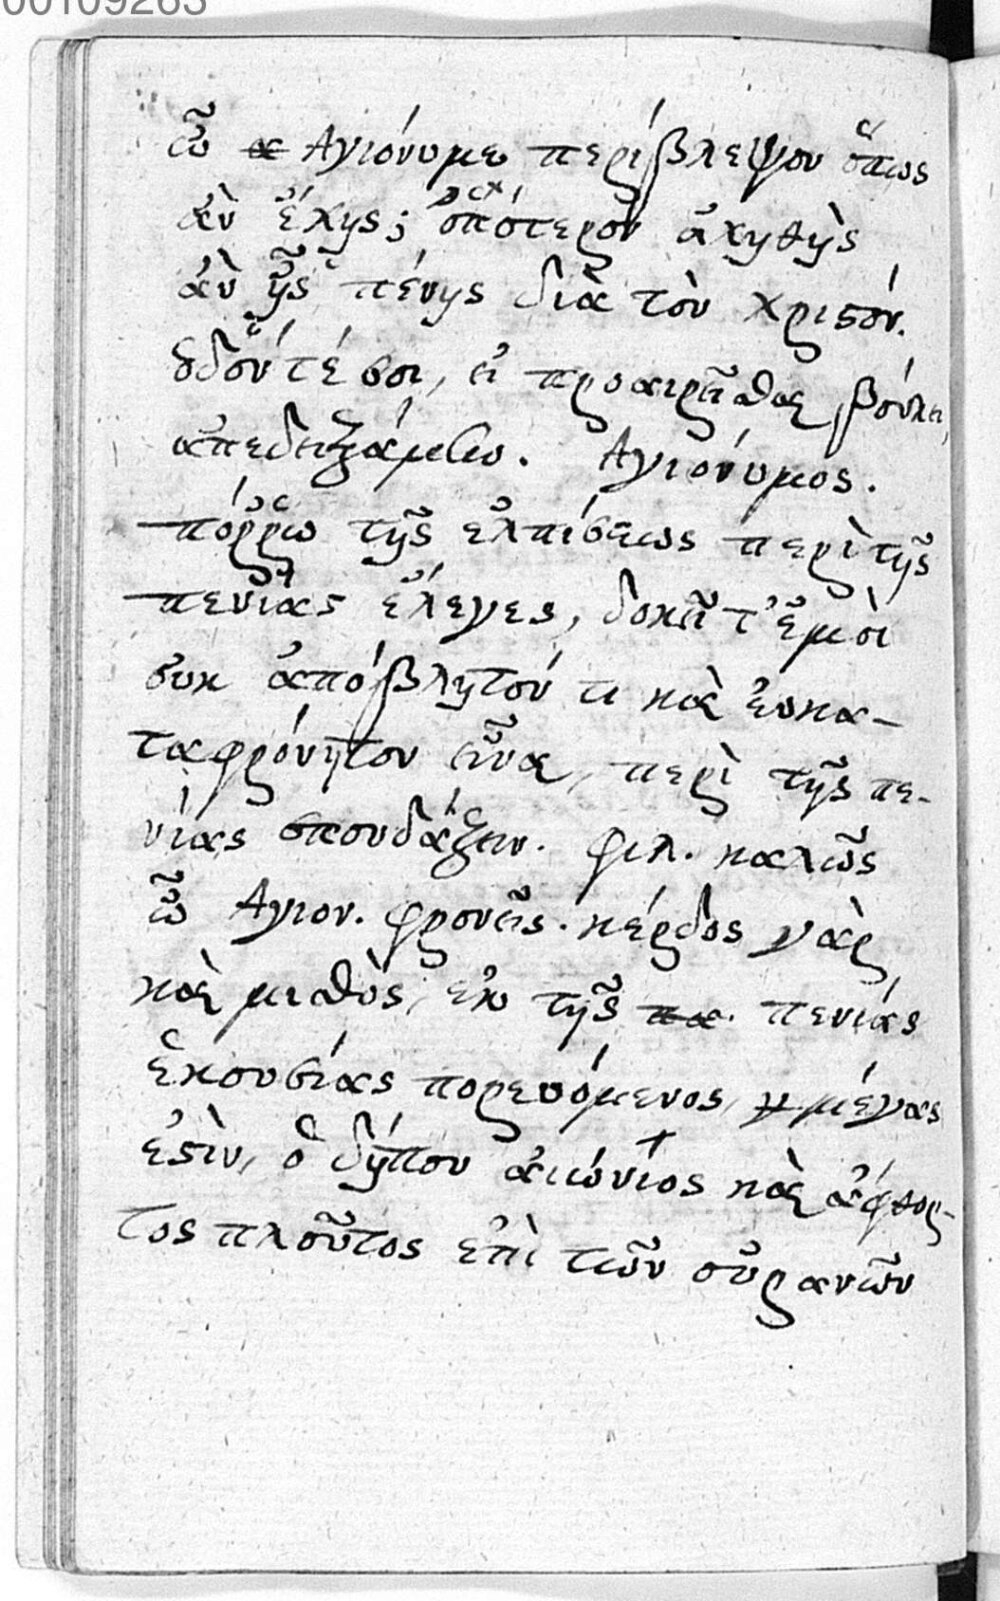 00109263
ὦ Ἁγιόνυμε περίβλεψον ὅπως
ἂν ἔχῃς; ὁπότερον ἀχθῇς
ἂν ᾖς πένης διὰ τὸν χριστόν.
οἷόν τέ σοι, εἰ προαιρεῖσθαι βούλει,
Ἁγιόνυμος.
πόῤῥω τῆς ἐλπίσεως περὶ τῆς
πενίας ἔλεγες, δοκεῖ τ' ἐμοὶ
οὐκ ἀπόβλητόν τι καὶ εὐκα-
ταφρόνητον εἶναι, περὶ τῆς πε-
νίας σπουδάζειν. φιλ. καλῶς
ὦ Ἁγιον. φρονεῖς. κέρδος γὰρ
καὶ μισθὸς, ἐκ τῆς πενίας
ἑκουσίας πορευόμενος, μέγας
ἐστὶν, ὁ δήπου αἰώνιος καὶ ἄφθαρ-
τος πλοῦτος ἐπὶ τῶν οὐρανῶν